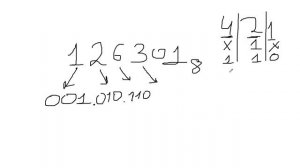 4|2|1
x|1|x
1|1|0
126301₈
001.010.110